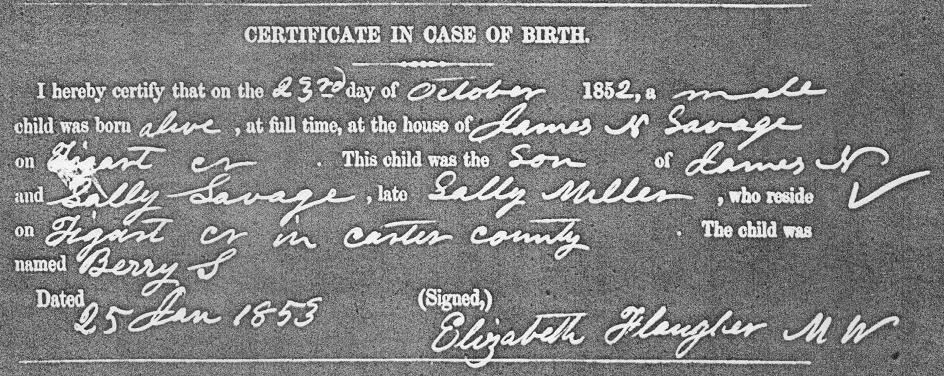 CERTIFICATE IN CASE OF BIRTH.
I hereby certify that on the 23rd day of October 1852, a male
child was born alive , at full time, at the house of James N Savage
on Tigart cr . This child was the Son of James N
and Sally Savage , late Sally Miller , who reside
on Tigart cr in carter county . The child was
named Berry S
Dated 25 Jan 1853 (Signed,)
Elizabeth Flaugher M W